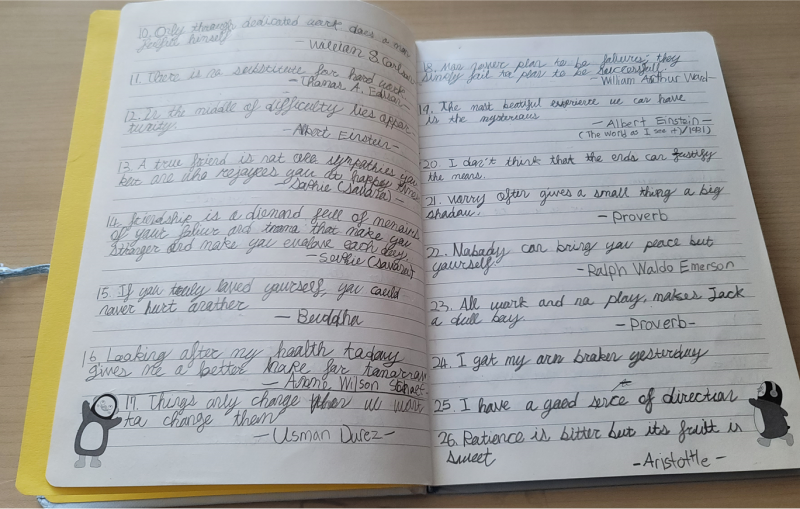 10. Only through dedicated work does a man
herself
- William S. Carlson
11. There is no substitute for hard work
- Thomas A. Edison -
12. In the middle of difficulty lies oppor
tunity.
- Albert Einstein -
13. A true friend is not one sympathies you
but are who rejoyces you at happy times
- Sophie (Savana) -
14. friendship is a diomand full of
of your failuer and trama that make you
stronger and make you evolove each day.
- Sophie (Savana)
15. If you truly loved yourself, you could
never hurt another
- Beuddha
16. Looking after my health today
gives me a better hope for tomorrow
- Anne Wilson
17. Things only change when we want
to change them
- Usman
18. Man never plan to be failures; they
simply fail to plan to be successfull.
- William Arthur Ward -
19. The most beatiful experience we can have
is the mysterious
- Albert Einstein -
(The world as I see it)/1931)
20. I don't think that the ends can justify
the means.
21. Worry often gives a small thing a big
shadow.
- Proverb
22. Nobady can bring you peace but
yourself.
- Ralph Waldo Emerson
23. All work and no play, makes Jack
a dull boy
- Proverb -
24. I got my arm broken yesterday
25. I have a good sence of direction
26. Patience is bitter but its fruit is
sweet
- Aristottle -